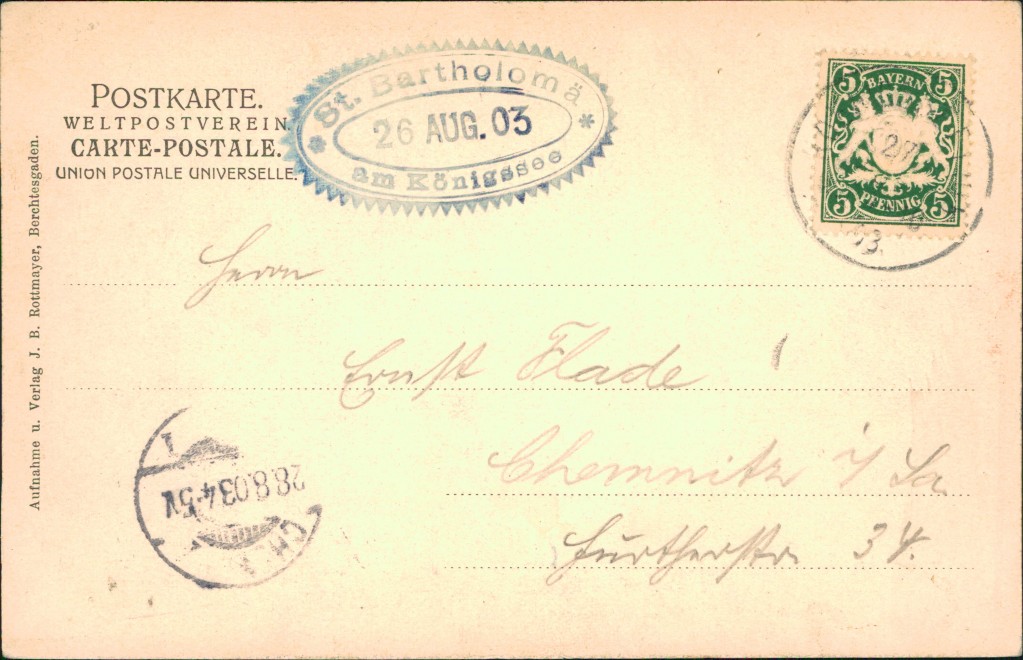 POSTKARTE.
WELTPOSTVEREIN.
CARTE-POSTALE.
UNION POSTALE UNIVERSELLE.
* St. Bartholomä *
26 AUG. 03
am Königssee
5 BAYERN 5
5 PFENNIG 5
Herrn
Ernst Flade
Chemnitz i/Sa
Fürtherstr 34.
28.8.03 4-5V.
1
Aufnahme u. Verlag J. B. Rottmayer, Berchtesgaden.